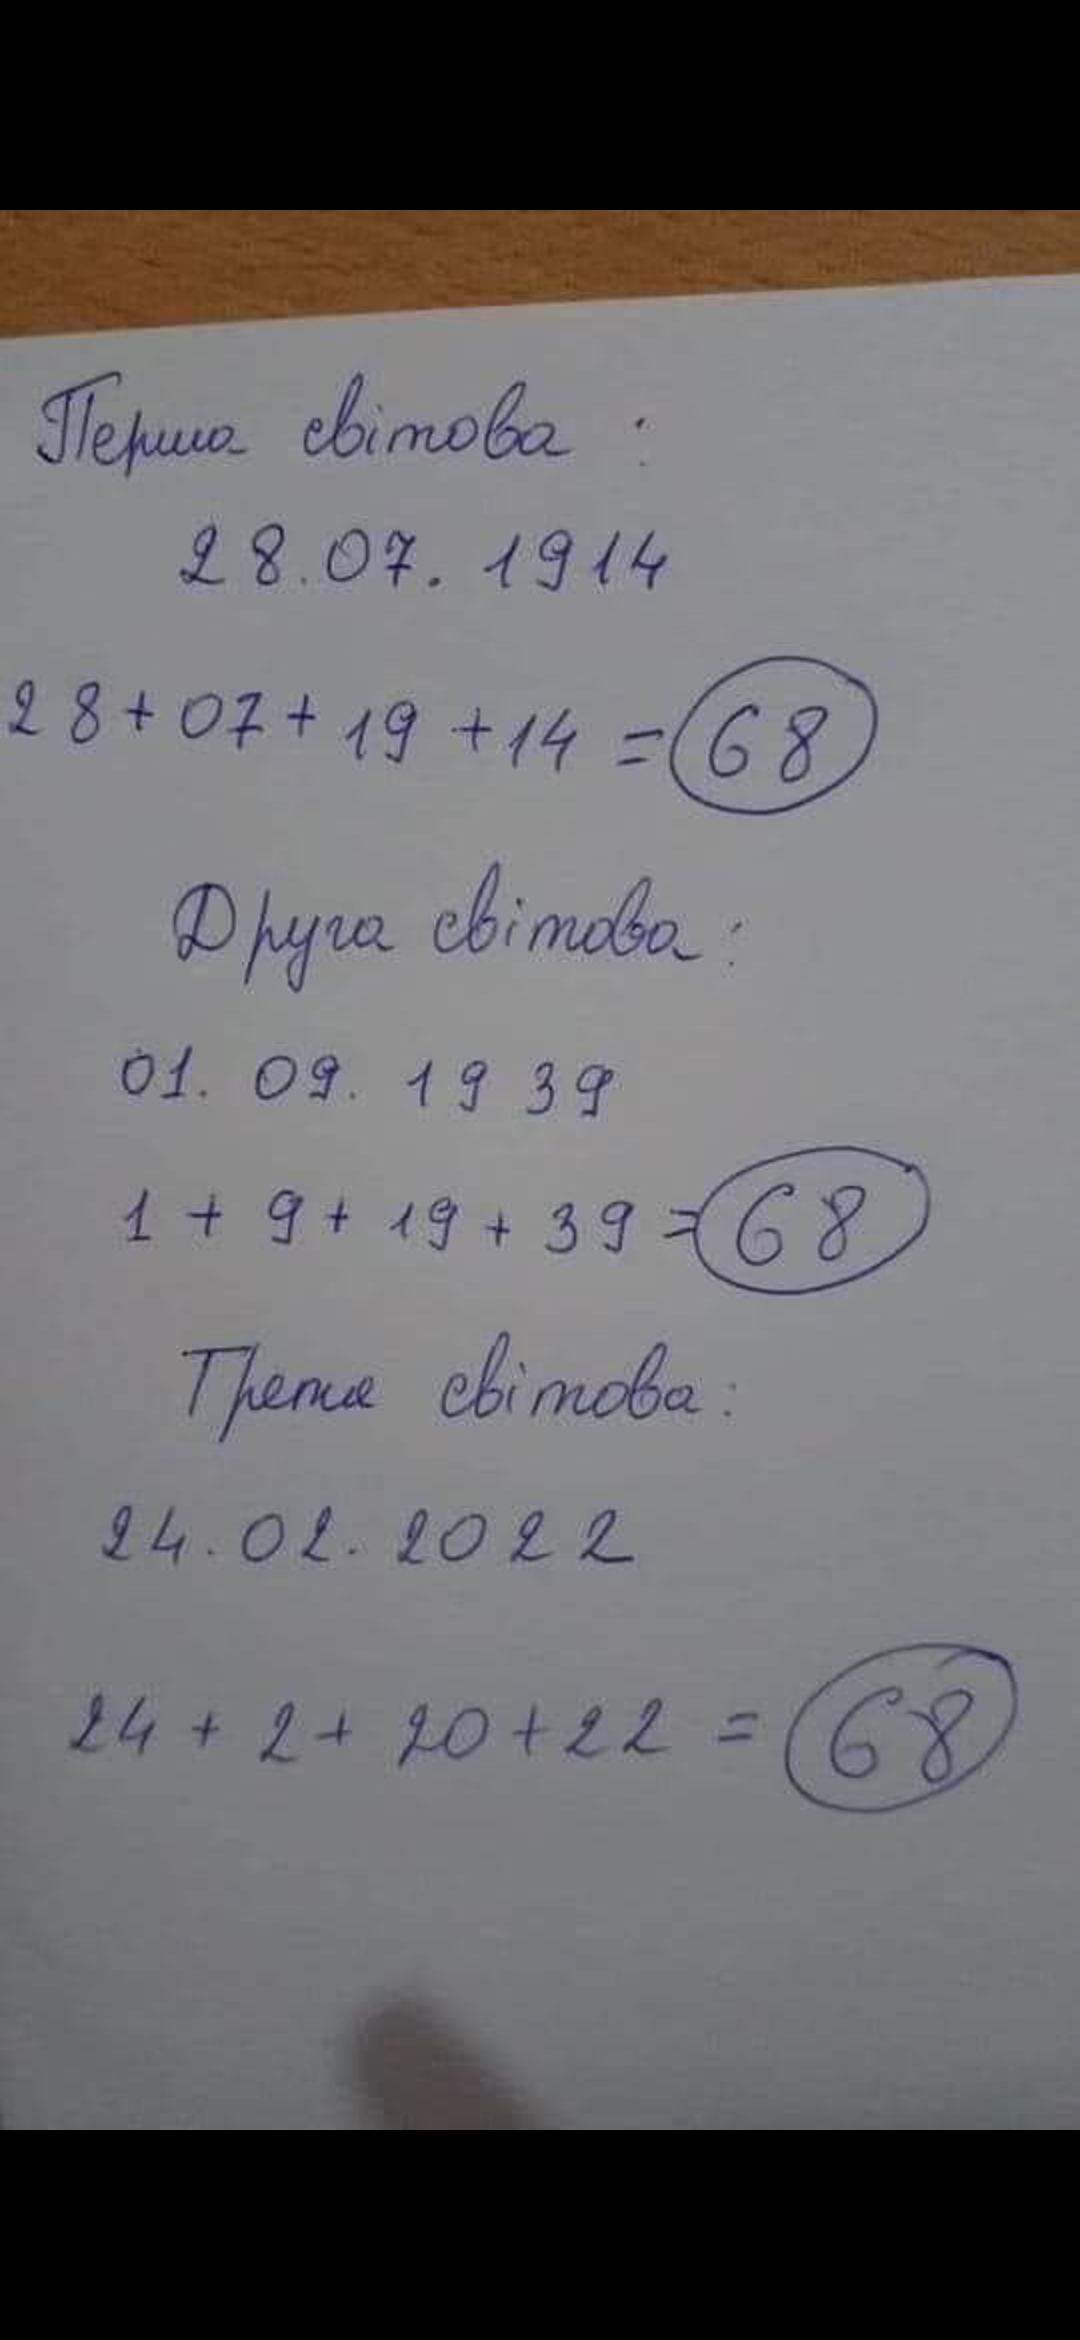 Перша світова :
28.07.1914
28+07+19+14=68
Друга світова:
01.09.1939
1+9+19+39=68
Третя світова:
24.02.2022
24+2+20+22=68